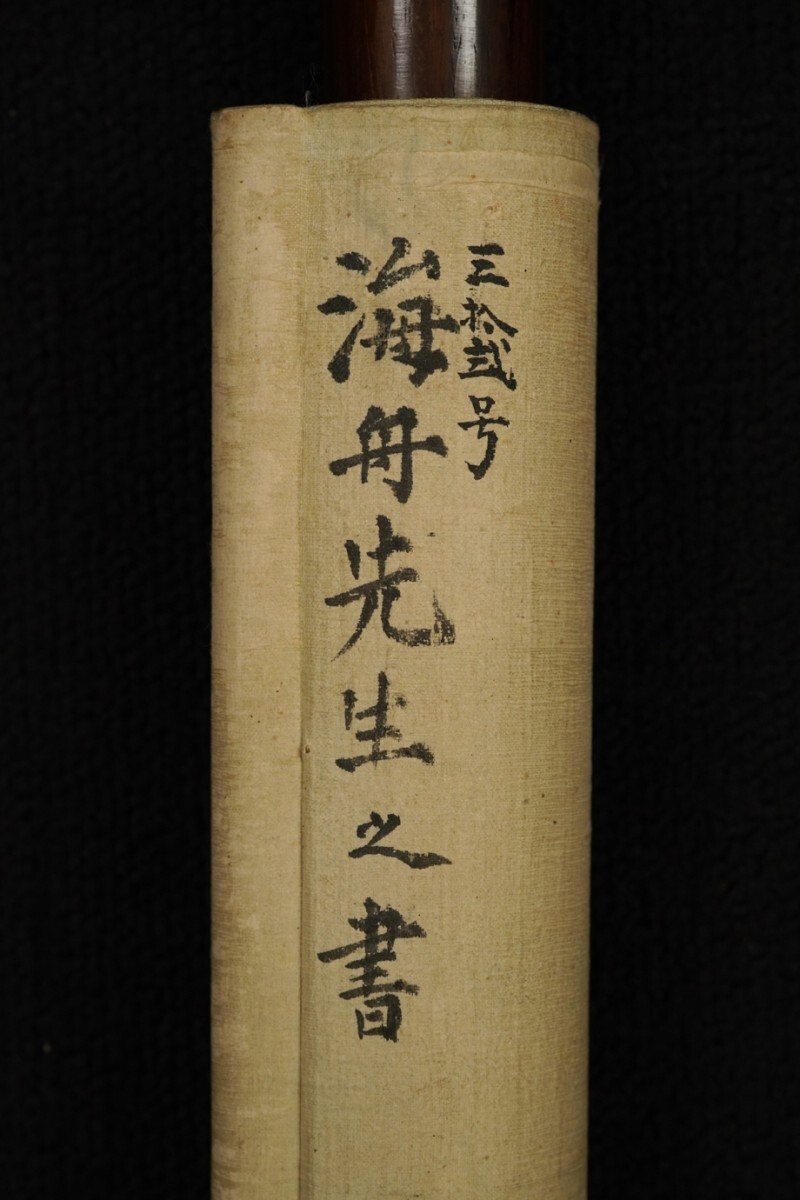 三拾弐号
海舟先生之書